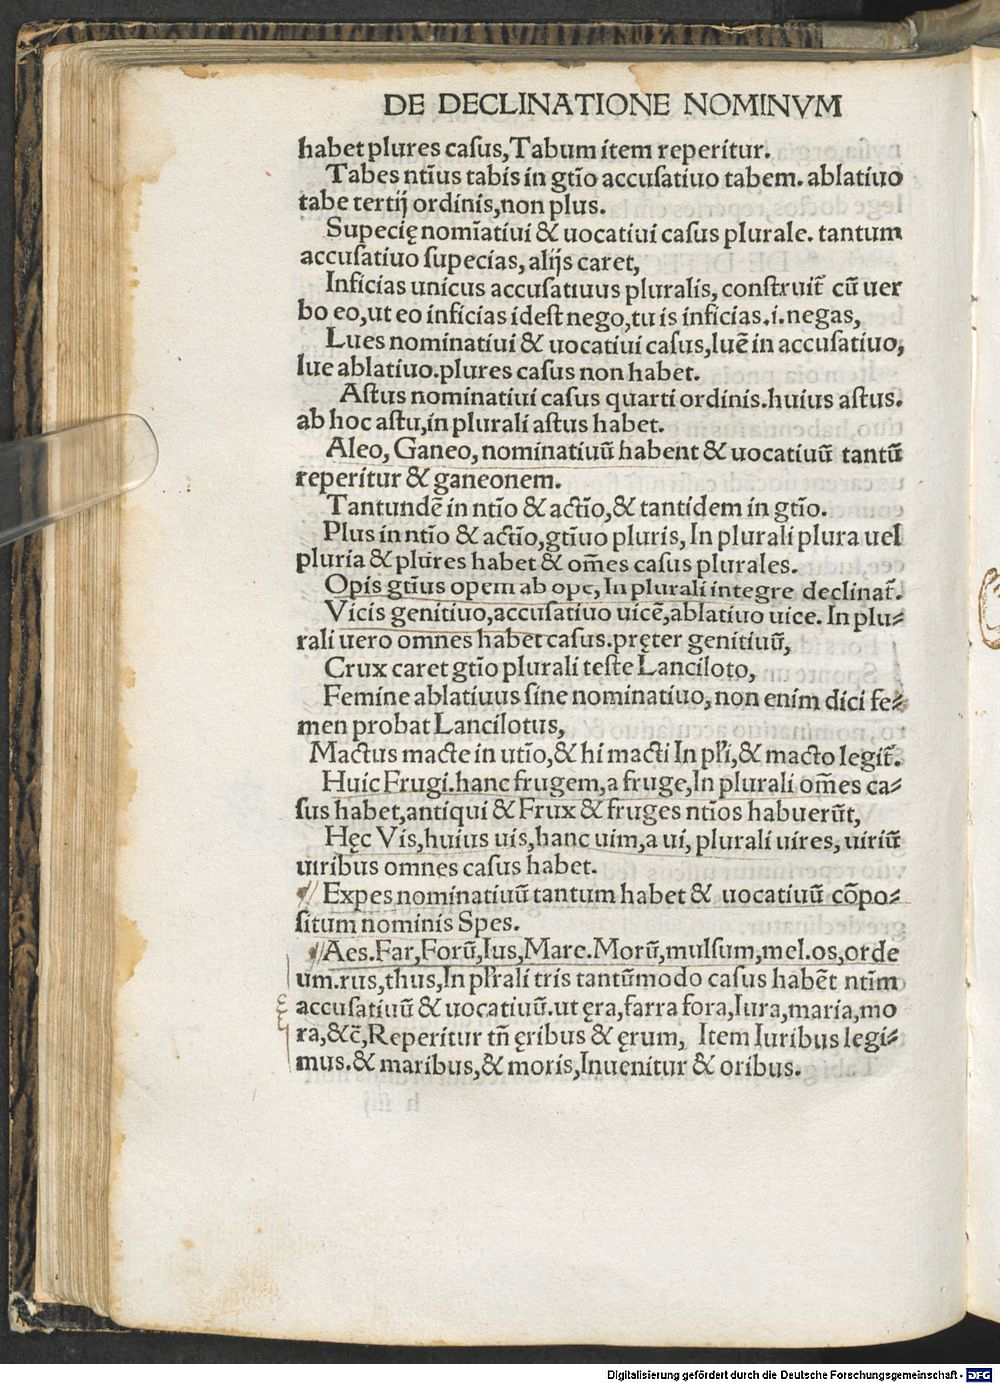 DE DECLINATIONE NOMINVM
habet plures casus, Tabum item reperitur.
Tabes ntĩus tabis in gtĩo accusatiuo tabem. ablatiuo
tabe tertij ordinis, non plus.
Supecię nomĩatiui & uocatiui casus plurale. tantum
accusatiuo supecias, alijs caret,
Inficias unicus accusatiuus pluralis, construit̃ cũ uer
bo eo, ut eo inficias idest nego, tu is inficias .i. negas,
Lues nominatiui & uocatiui casus, luẽ in accusatiuo,
lue ablatiuo. plures casus non habet.
Astus nominatiui casus quarti ordinis. huius astus.
ab hoc astu, in plurali astus habet.
Aleo, Ganeo, nominatiuũ habent & uocatiuũ tantũ
reperitur & ganeonem.
Tantundẽ in ntĩo & actĩo, & tantidem in gtĩo.
Plus in ntĩo & actĩo, gtĩuo pluris, In plurali plura uel
pluria & plures habet & om̃es casus plurales.
Opis gtĩus opem ab ope, In plurali integre declinat̃.
Vicis genitiuo, accusatiuo uicẽ, ablatiuo uice. In plu-
rali uero omnes habet casus. pręter genitiuũ,
Crux caret gtĩo plurali teste Lanciloto,
Femine ablatiuus sine nominatiuo, non enim dici fe-
men probat Lancilotus,
Mactus macte in utĩo, & hi macti In pl̃i, & macto legit̃.
Huic Frugi. hanc frugem, a fruge, In plurali om̃es ca-
sus habet, antiqui & Frux & fruges ntĩos habuerũt,
Hęc Vis, huius uis, hanc uim, a ui, plurali uires, uiriũ
uiribus omnes casus habet.
Expes nominatiuũ tantum habet & uocatiuũ cõpo-
situm nominis Spes.
Aes. Far, Forũ, Ius, Mare. Morũ, mulsum, mel. os, orde
um. rus, thus, In pl̃rali tris tantũmodo casus habẽt ntĩm
accusatiuũ & uocatiuũ. ut ęra, farra fora, Iura, maria, mo
ra, &c̃, Reperitur tñ ęribus & ęrum, Item Iuribus legi-
mus. & maribus, & moris, Inuenitur & oribus.
Digitalisierung gefördert durch die Deutsche Forschungsgemeinschaft - DFG